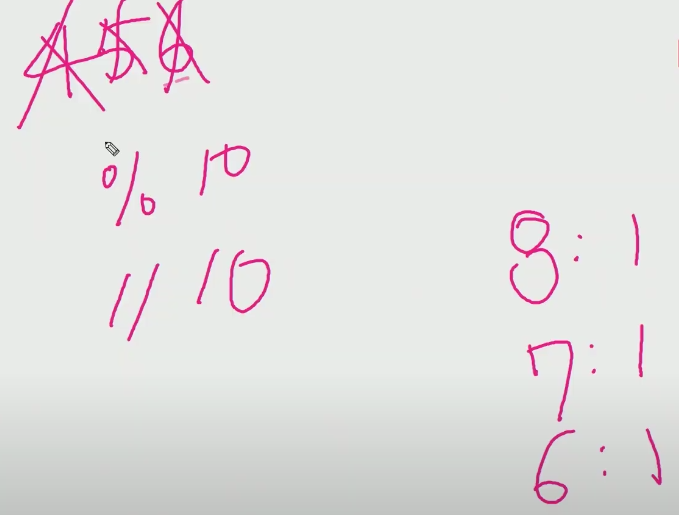 456
% 10
// 10
8: 1
7: 1
6: 1